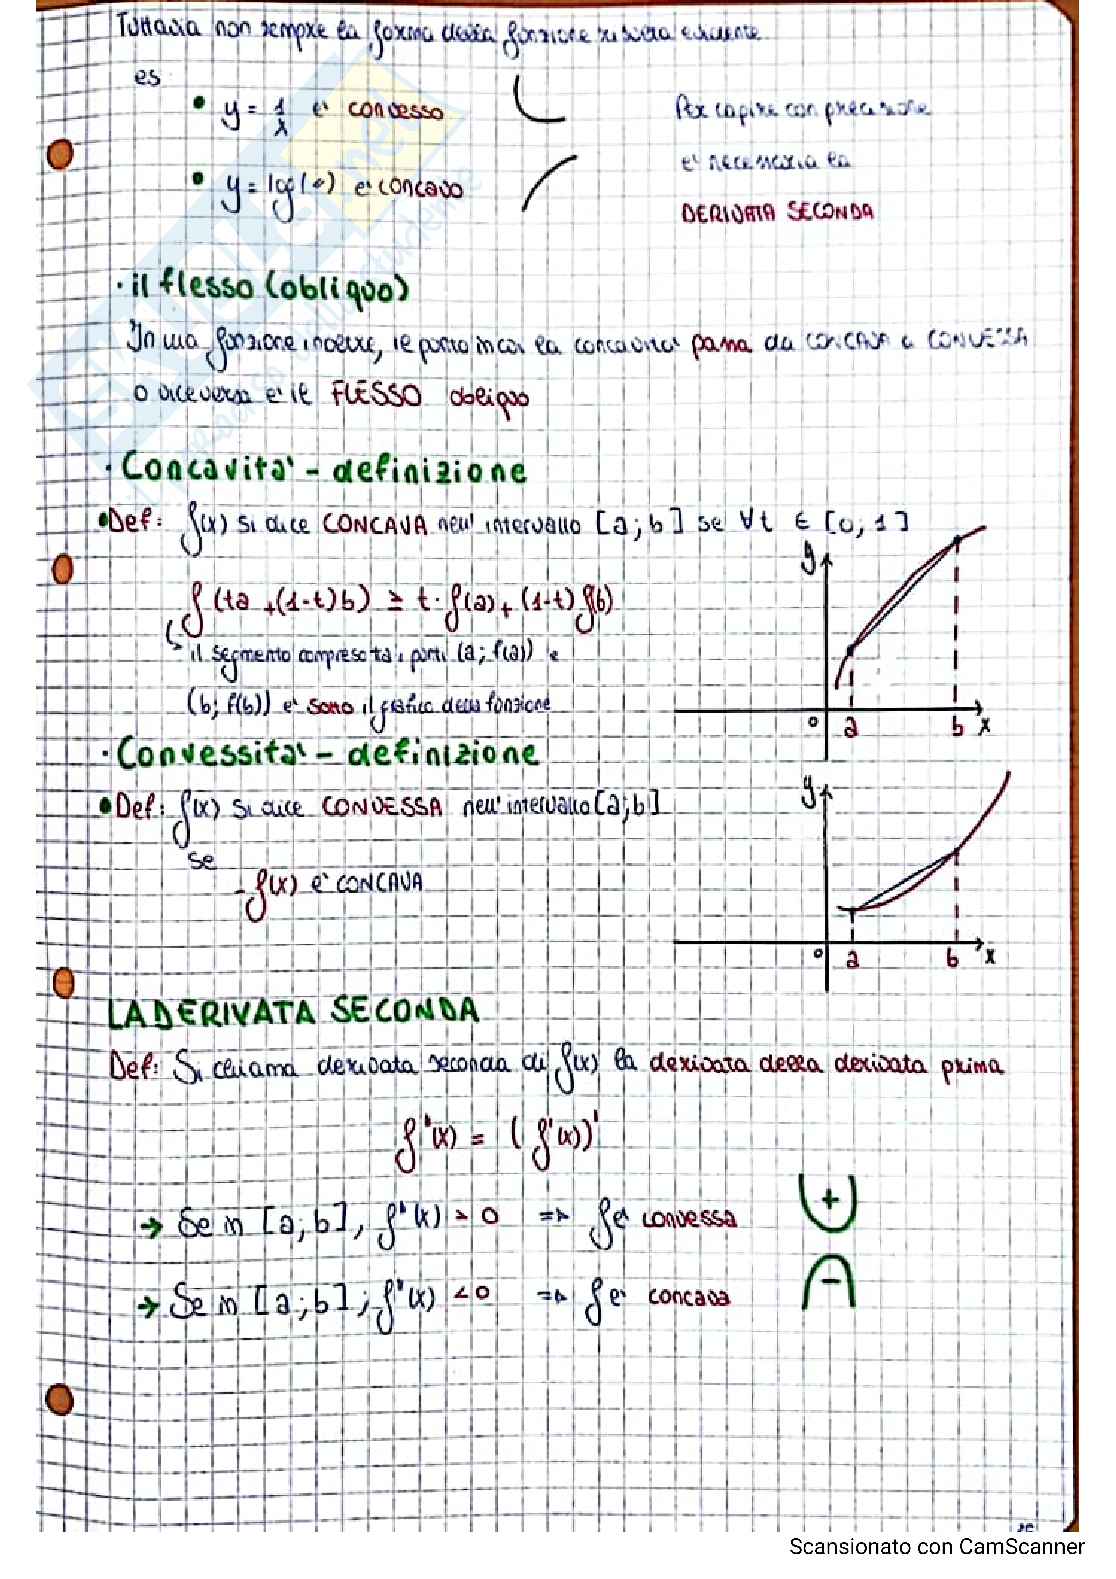 Tuttavia non sempre la forma della funzione risulta evidente
es
• y = 1/x e' convesso
Per capire con precisione
e' necessaria la
• y = log(•) e' concavo
DERIVATA SECONDA
• il flesso (obliquo)
In una funzione il punto in cui la concavita' passa da CONCAVA a CONVESSA
o viceversa e' il FLESSO obliquo
• Concavita' - definizione
• Def: f(x) si dice CONCAVA nell' intervallo [a; b] se ∀t ∈ [0, 1]
f(ta + (1-t)b) ≥ t · f(a) + (1-t) f(b)
↳ il segmento compreso tra i punti (a; f(a)) e
(b; f(b)) e' sotto il grafico della funzione
y
0 a b x
• Convessita' - definizione
• Def: f(x) si dice CONVESSA nell' intervallo [a; b]
se
- f(x) e' CONCAVA
y
0 a b x
LA DERIVATA SECONDA
Def: Si chiama derivata seconda di f(x) la derivata della derivata prima
f''(x) = (f'(x))'
→ Se in [a; b], f''(x) > 0 ⇒ f e' convessa +
→ Se in [a; b]; f''(x) < 0 ⇒ f e' concava −
Scansionato con CamScanner